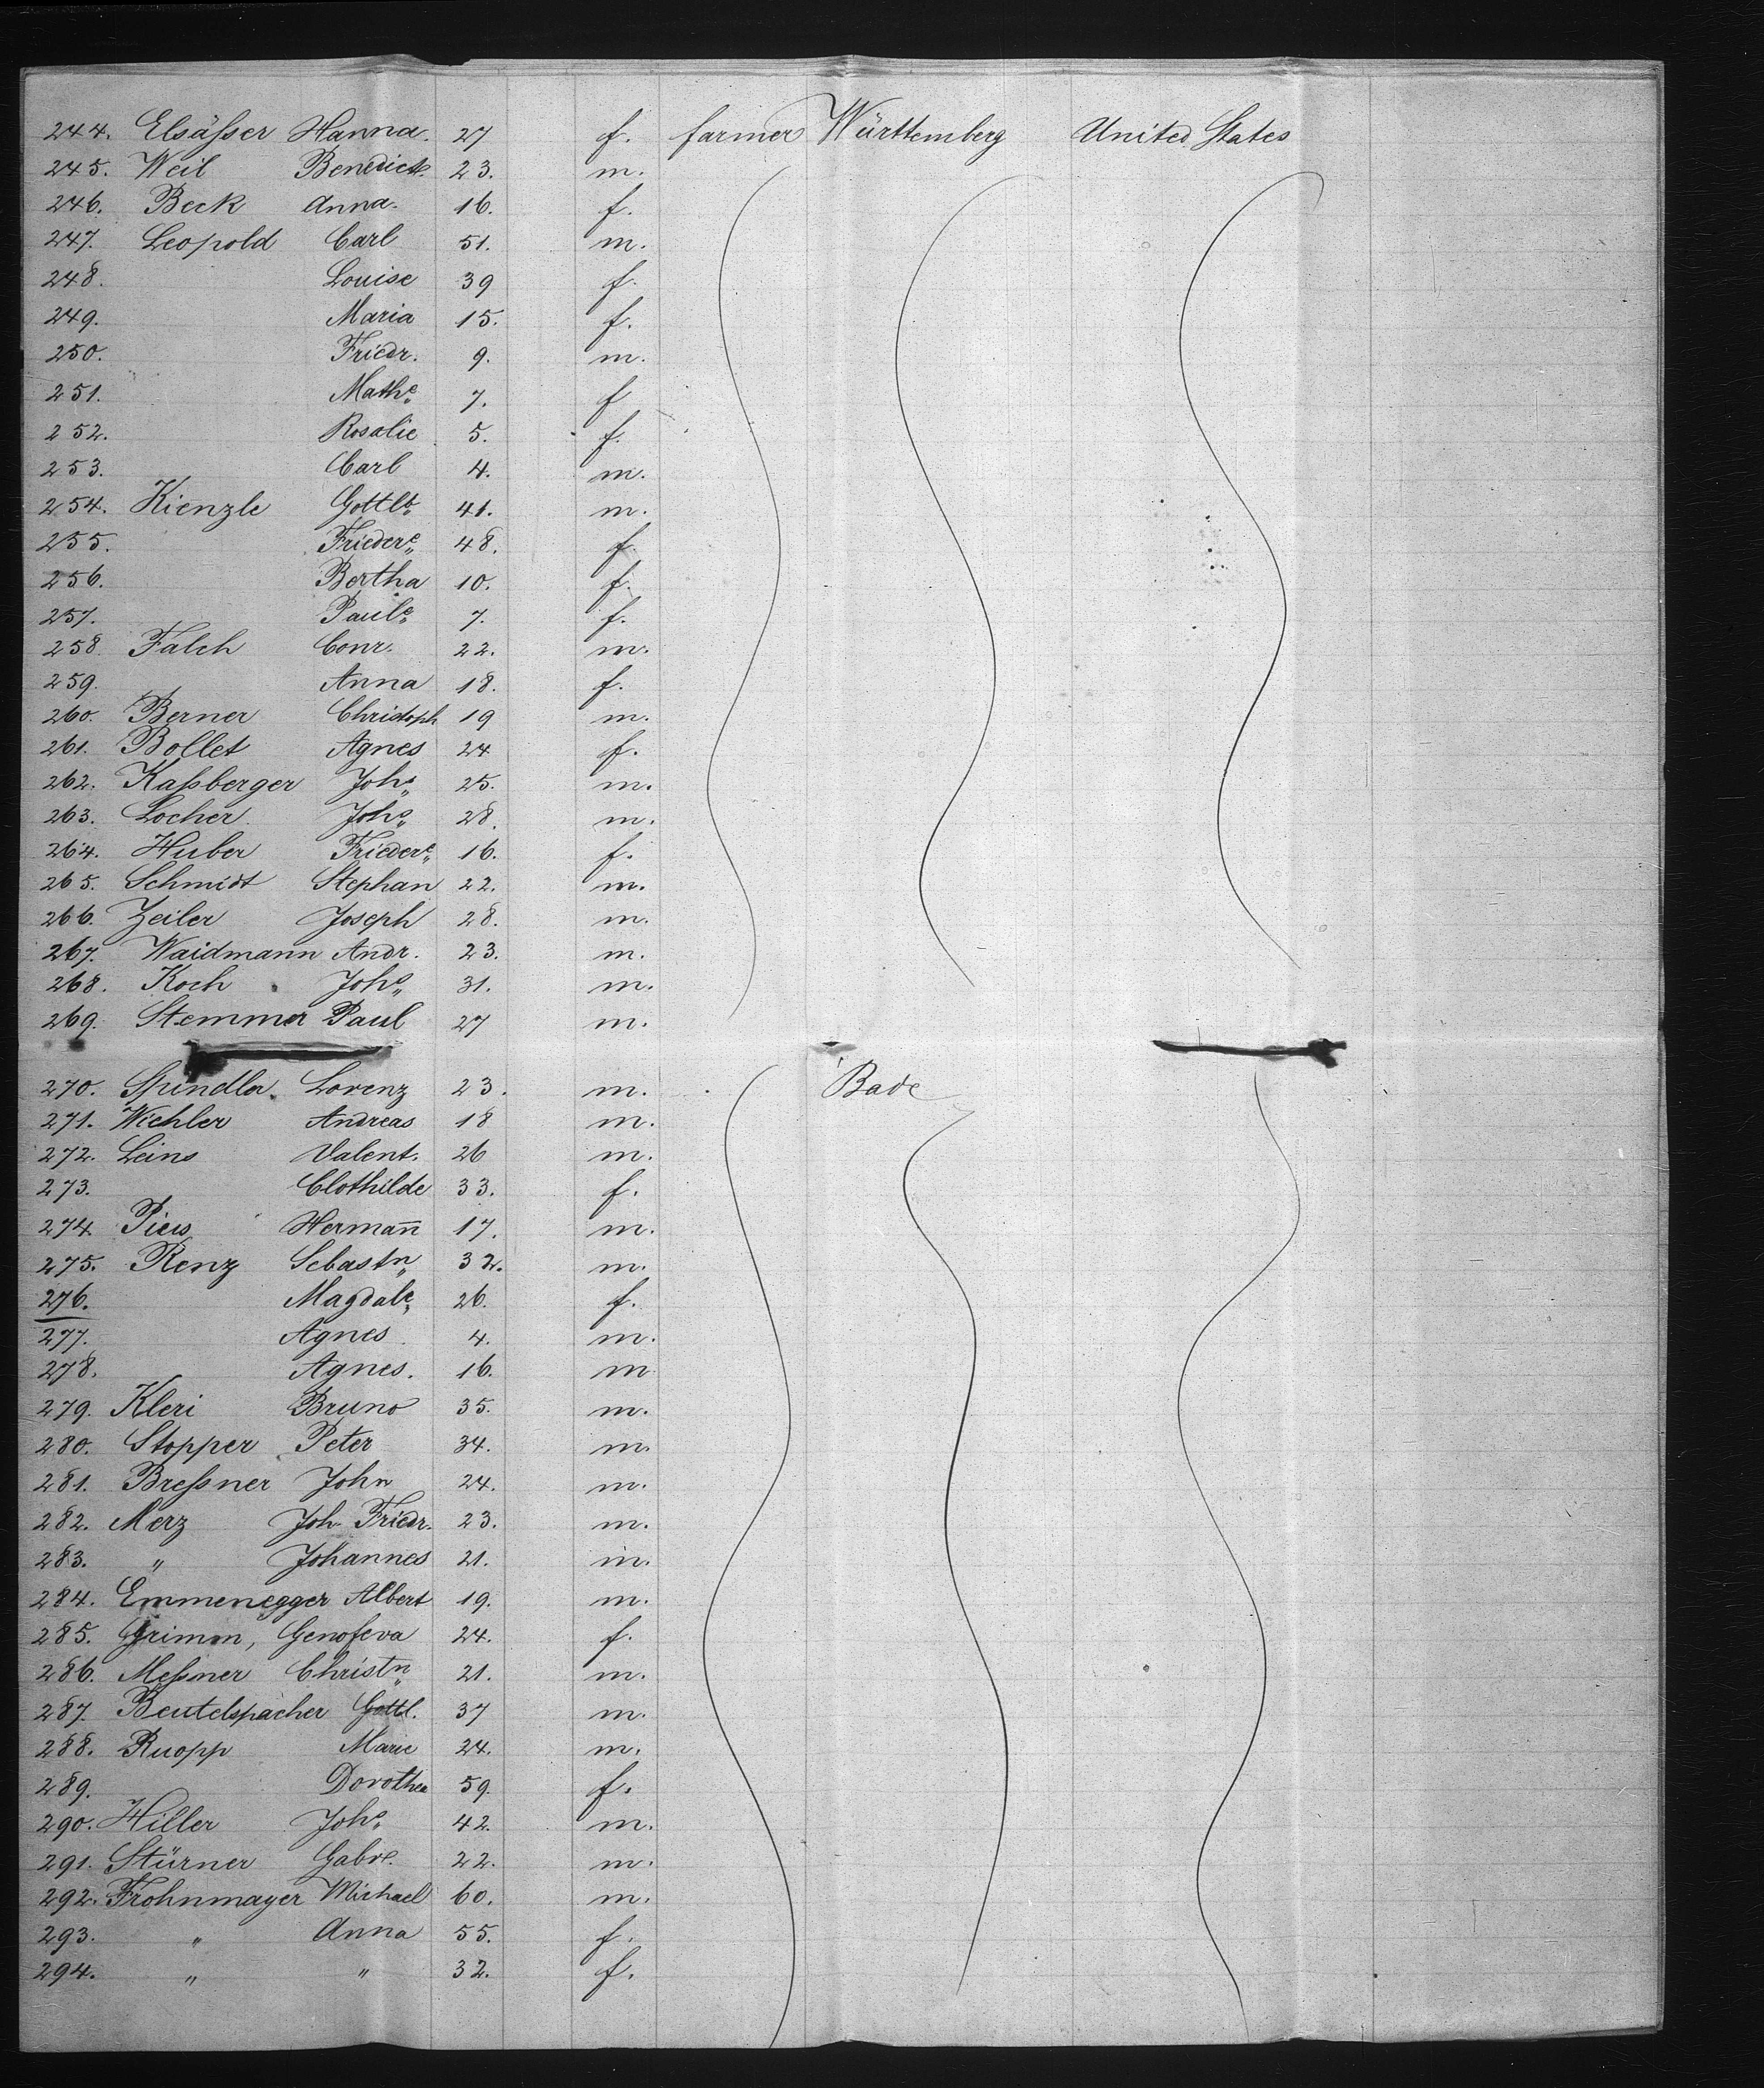 244. Elsäßer Hanna. 27 f. farmer Württemberg United States
245. Weil Benedict. 23. m.
246. Beck Anna. 16. f.
247. Leopold Carl 51. m.
248. Louise 39 f.
249. Maria 15. f.
250. Friedr. 9. m.
251. Mathe 7. f
252. Rosalie 5. f.
253. Carl 4. m.
254. Kienzle Gottlb. 41. m.
255. Friedere 48. f.
256. Bertha 10. f.
257. Paule 7. f.
258. Falch Conr. 22. m.
259. Anna 18. f.
260. Berner Christoph 19 m.
261. Bollet Agnes 24 f.
262. Kaßberger Johs 25. m.
263. Locher Johs 28. m.
264. Huber Friedere 16. f.
265. Schmidt Stephan 22. m.
266. Zeiler Joseph 28. m.
267. Waidmann Andr. 23. m.
268. Koch Johs 31. m.
269. Stemmer Paul 27 m.
270. Spindler Lorenz 23. m. Bade
271. Wichler Andreas 18 m.
272. Leins Valent. 26 m.
273. Clothilde 33. f.
274. Pius Hermañ 17. m.
275. Renz Sebastn 32. m.
276. Magdale 26. f.
277. Agnes 4. m.
278. Agnes. 16. m
279. Kleri Bruno 35. m.
280. Stopper Peter 34. m.
281. Breßner John 24. m.
282. Merz Joh. Friedr. 23. m.
283. " Johannes 21. m.
284. Emmenegger Albert 19. m.
285. Grimm, Genofeva 24. f.
286. Meßner Christn 21. m.
287. Beutelspacher Gottl. 37 m.
288. Ruopp Marie 24. m.
289. Dorothea 59. f.
290. Hiller Johs 42. m.
291. Stürner Gabrl. 22. m.
292. Frohnmayer Michael 60. m.
293. " Anna 55. f.
294. " " 32. f.